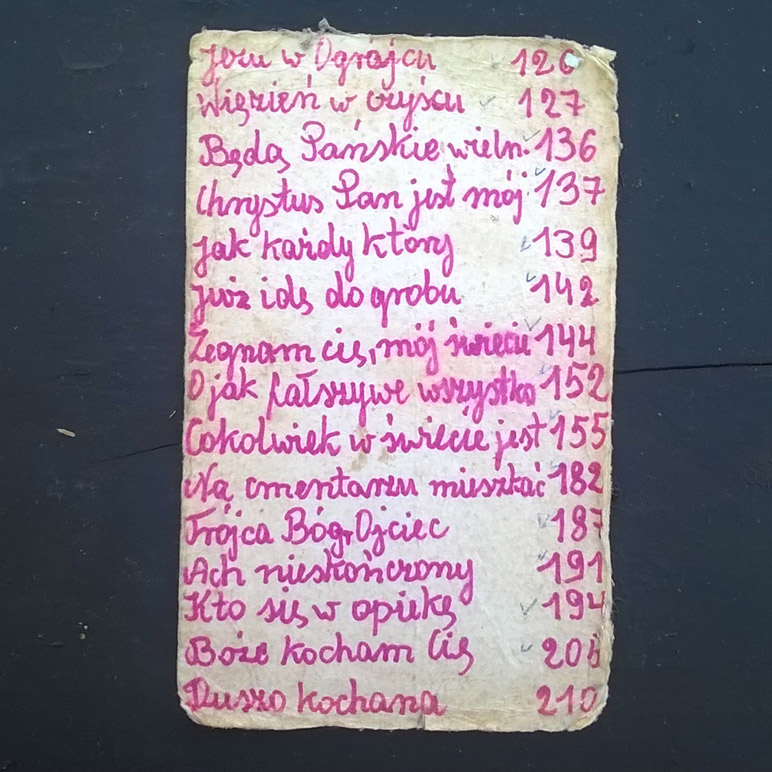 Jezu w Ogrójcu 126
Więzień w czyśćcu 127
Będą Pańskie wieln. 136
Chrystus Pan jest mój 137
Jak każdy który 139
Już idę do grobu 142
Żegnam cię, mój świecie 144
O jak fałszywe wszystko 152
Cokolwiek w świecie jest 155
Na cmentarzu mieszkać 182
Trójca Bóg, Ojciec 187
Ach nieskończony 191
Kto się w opiekę 194
Boże kocham Cię
Duszo kochana 210